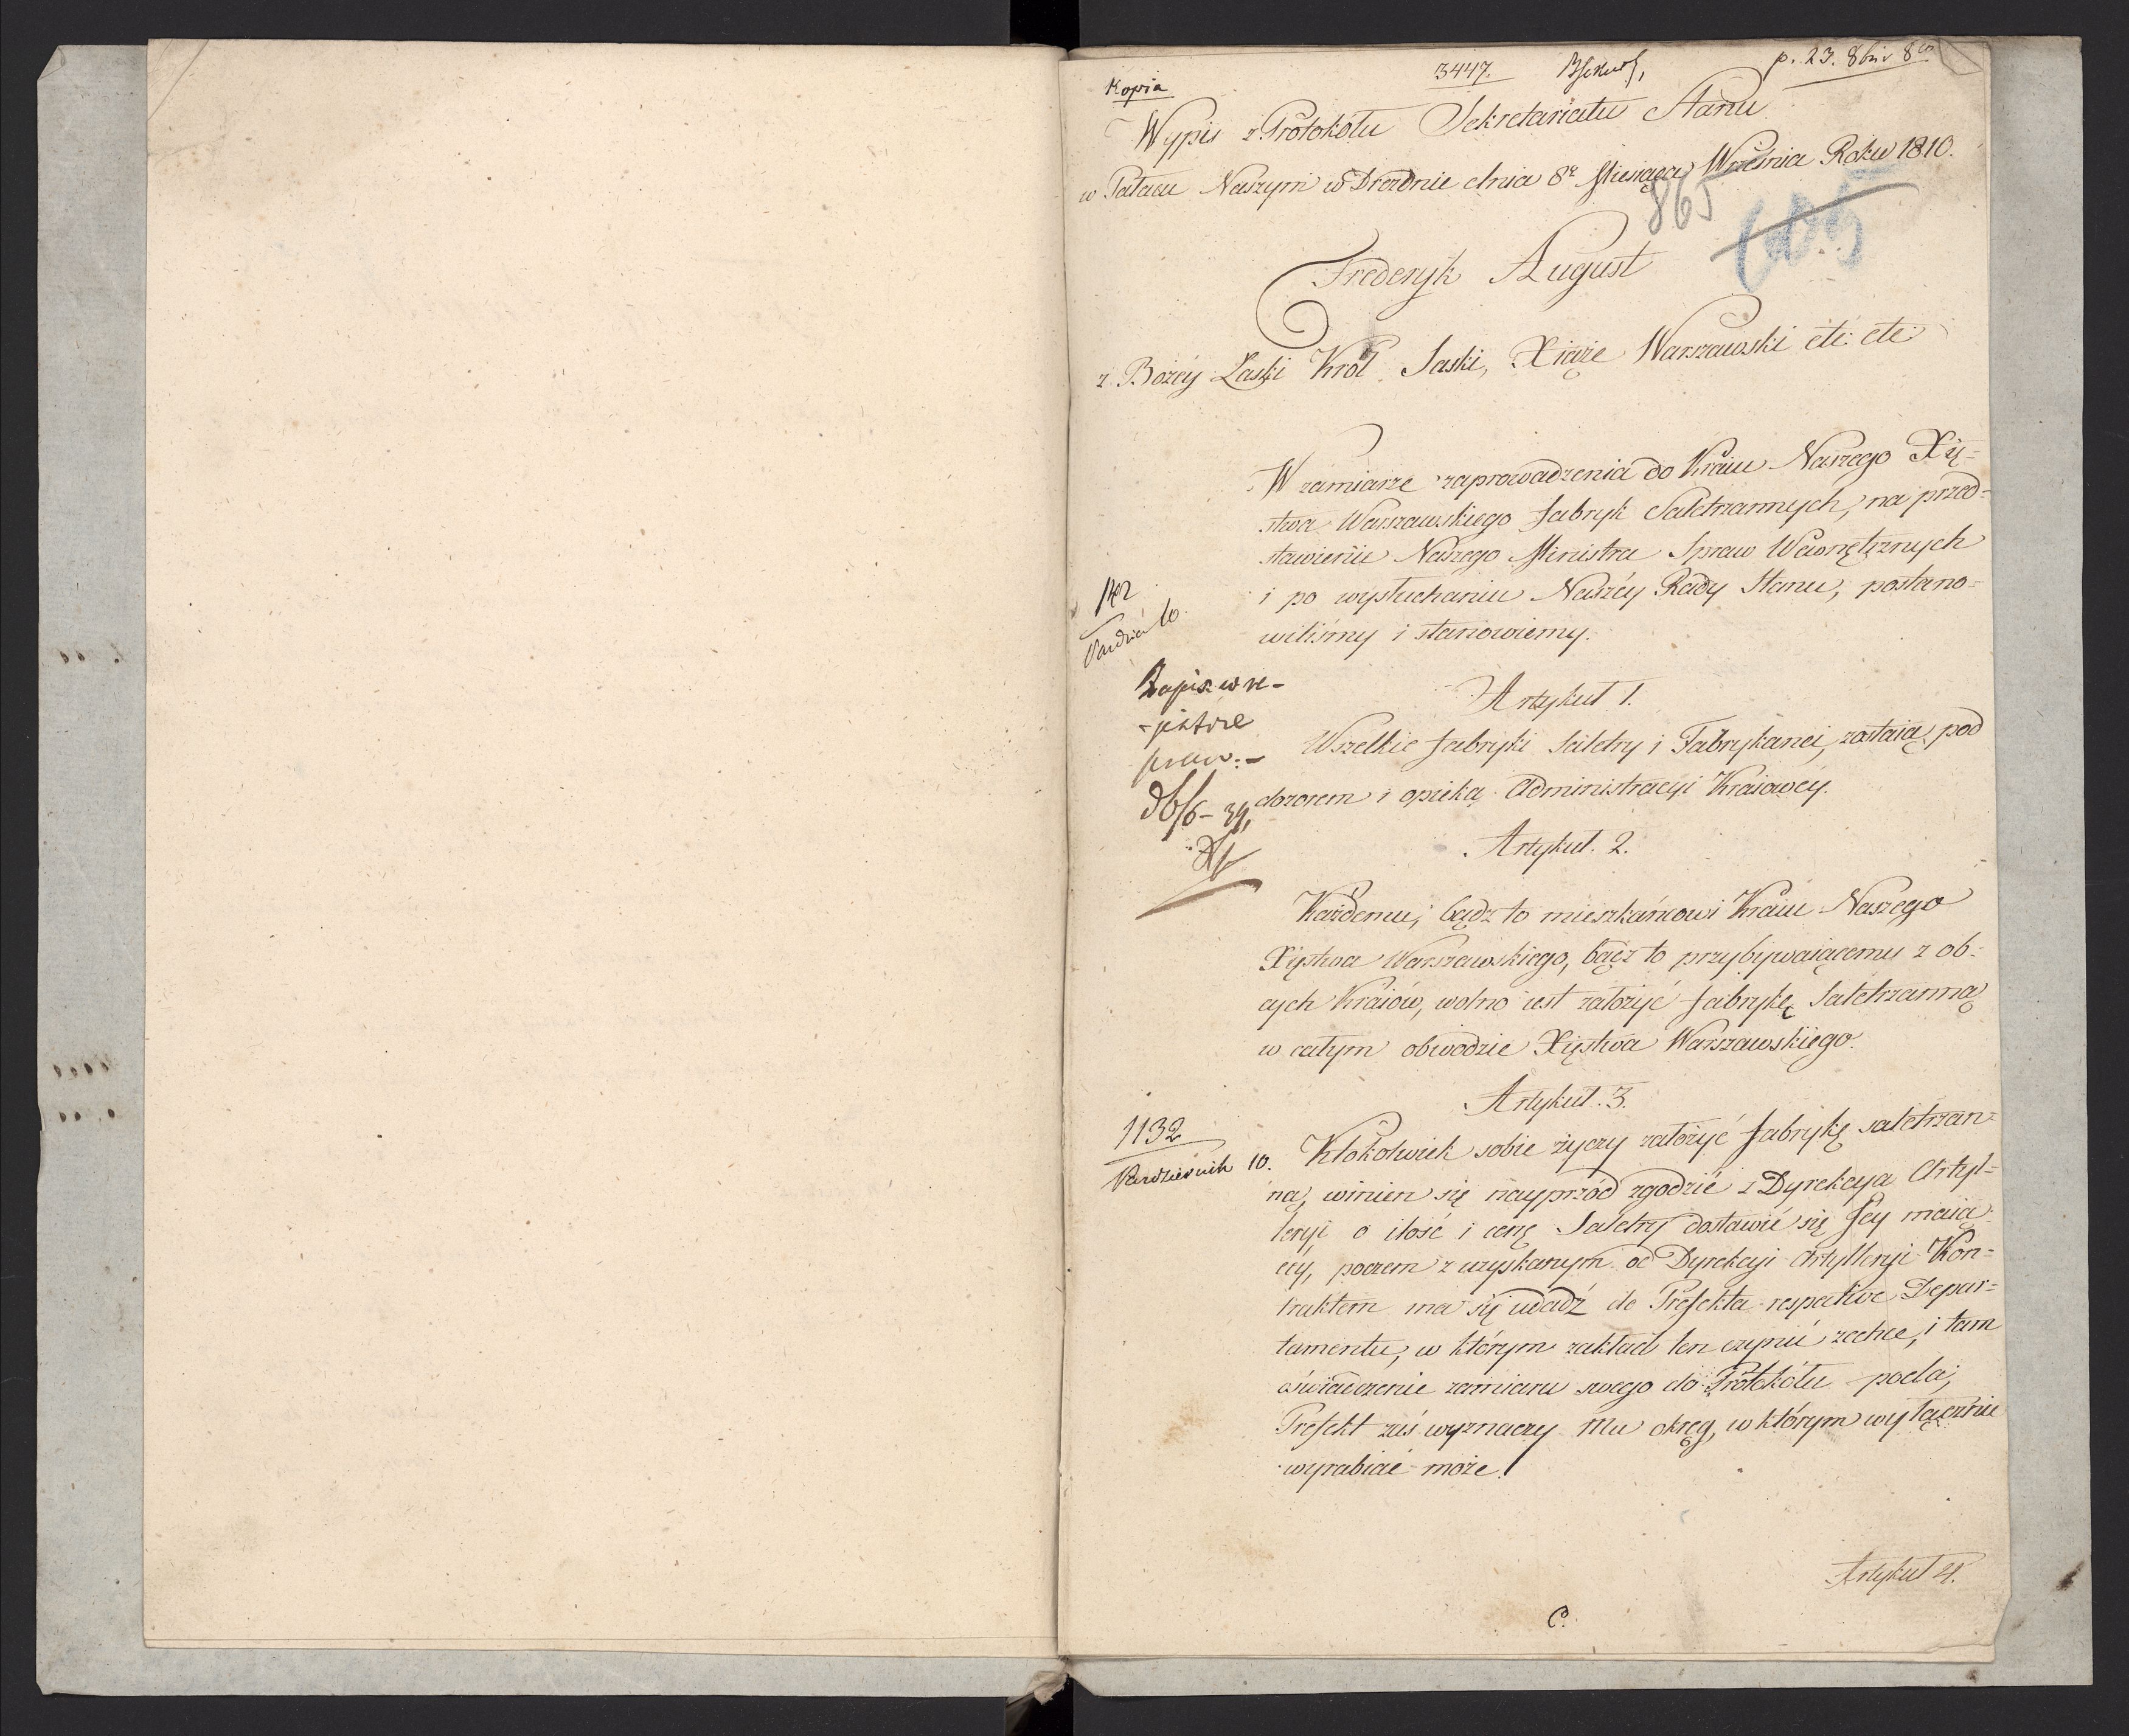 Kopia
3447.
p. 23. 8bris 8
Wypis z Protokołu Sekretariatu Stanu
w Pałacu Naszym w Dreźdnie dnia 8º Miesiąca Września Roku 1810.
865
Frederyk August
z Bożéy Łaski Król Saski, Xiąże Warszawski etc: etc:
W zamiarze zaprowadzenia do Kraiu Naszego Xię=
stwa Warszawskiego fabryk Saletrzannych, na przed=
stawienie Naszego Ministra Spraw Wewnętrznych
i po wysłuchaniu Naszéy Rady Stanu, postano=
wiliśmy i stanowiemy.
Zapis w re-
-jestrze
praw.-
Artykuł 1.
Wszelkie fabryki Saletry i Fabrykanci, zostaią pod
dozorem i opieką Administracyi Kraiowéy.
Artykuł. 2.
Każdemu, bądz to mieszkańcowi Kraiu Naszego
Xięstwa Warszawskiego, bądz to przybywaiącemu z ob=
cych Kraiów, wolno iest założyć fabrykę Saletrzanną
w całym obwodzie Xięstwa Warszawskiego.
Artykuł. 3.
1132
Pazdziernik 10.
Ktokolwiek sobie życzy założyć fabrykę saletrzan=
ną, winien się nayprzód zgodzić z Dyrekcyą Artyl=
leryi o ilość i cenę Saletry dostawić się Jey maią=
céy, poczem z uzyskanym od Dyrekcyi Artylleryi Kon=
traktem ma się udadź do Prefekta respective Depar=
tamentu, w którym zakład ten czynić zechce, i tam
oświadczenie zamiaru swego do Protokółu poda,
Prefekt zaś wyznaczy Mu okręg, w którym wyłącznie
wyrabiać może.
Artykuł 4.
C.